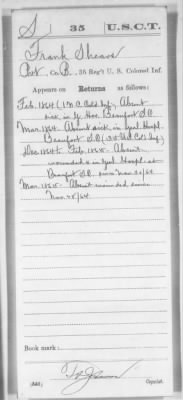 S 35 U.S.C.T.
Frank Shears
Pvt., Co. B, 35 Reg't U. S. Colored Inf.
Appears on Returns as follows:
Feb. 1864 (1st N.C. Cold Inf), Absent
sick in G. Hos. Beaufort S.C.
Mar. 1864. Absent sick in Genl. Hospl.
Beaufort S.C. (35 U.S. Cd Inf)
Dec 1864 to Feb. 1865. Absent
wounded in Genl. Hospl. at
Beaufort S.C. since Nov 30/64
Mar. 1865. Absent wounded since
Nov. 30/64
Book mark:
(546)
Copyist.